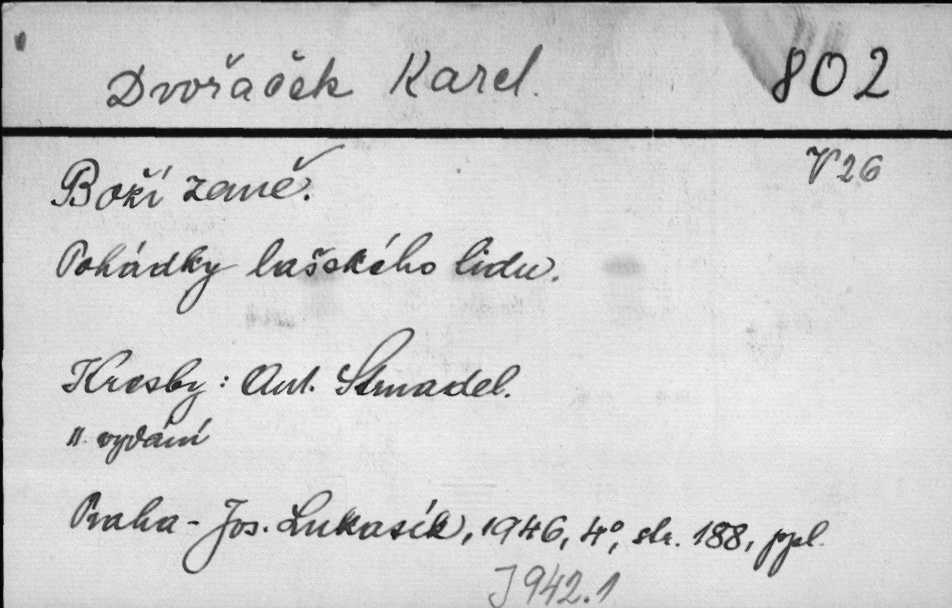 Dvořaček Karel. 802
V 26
Boží země.
Pohádky lašského lidu.
Kresby: Ant. Strnadel.
II. vydání
Praha - Jos. Lukasík, 1946, 4°, str. 188, ppl.
J942.1